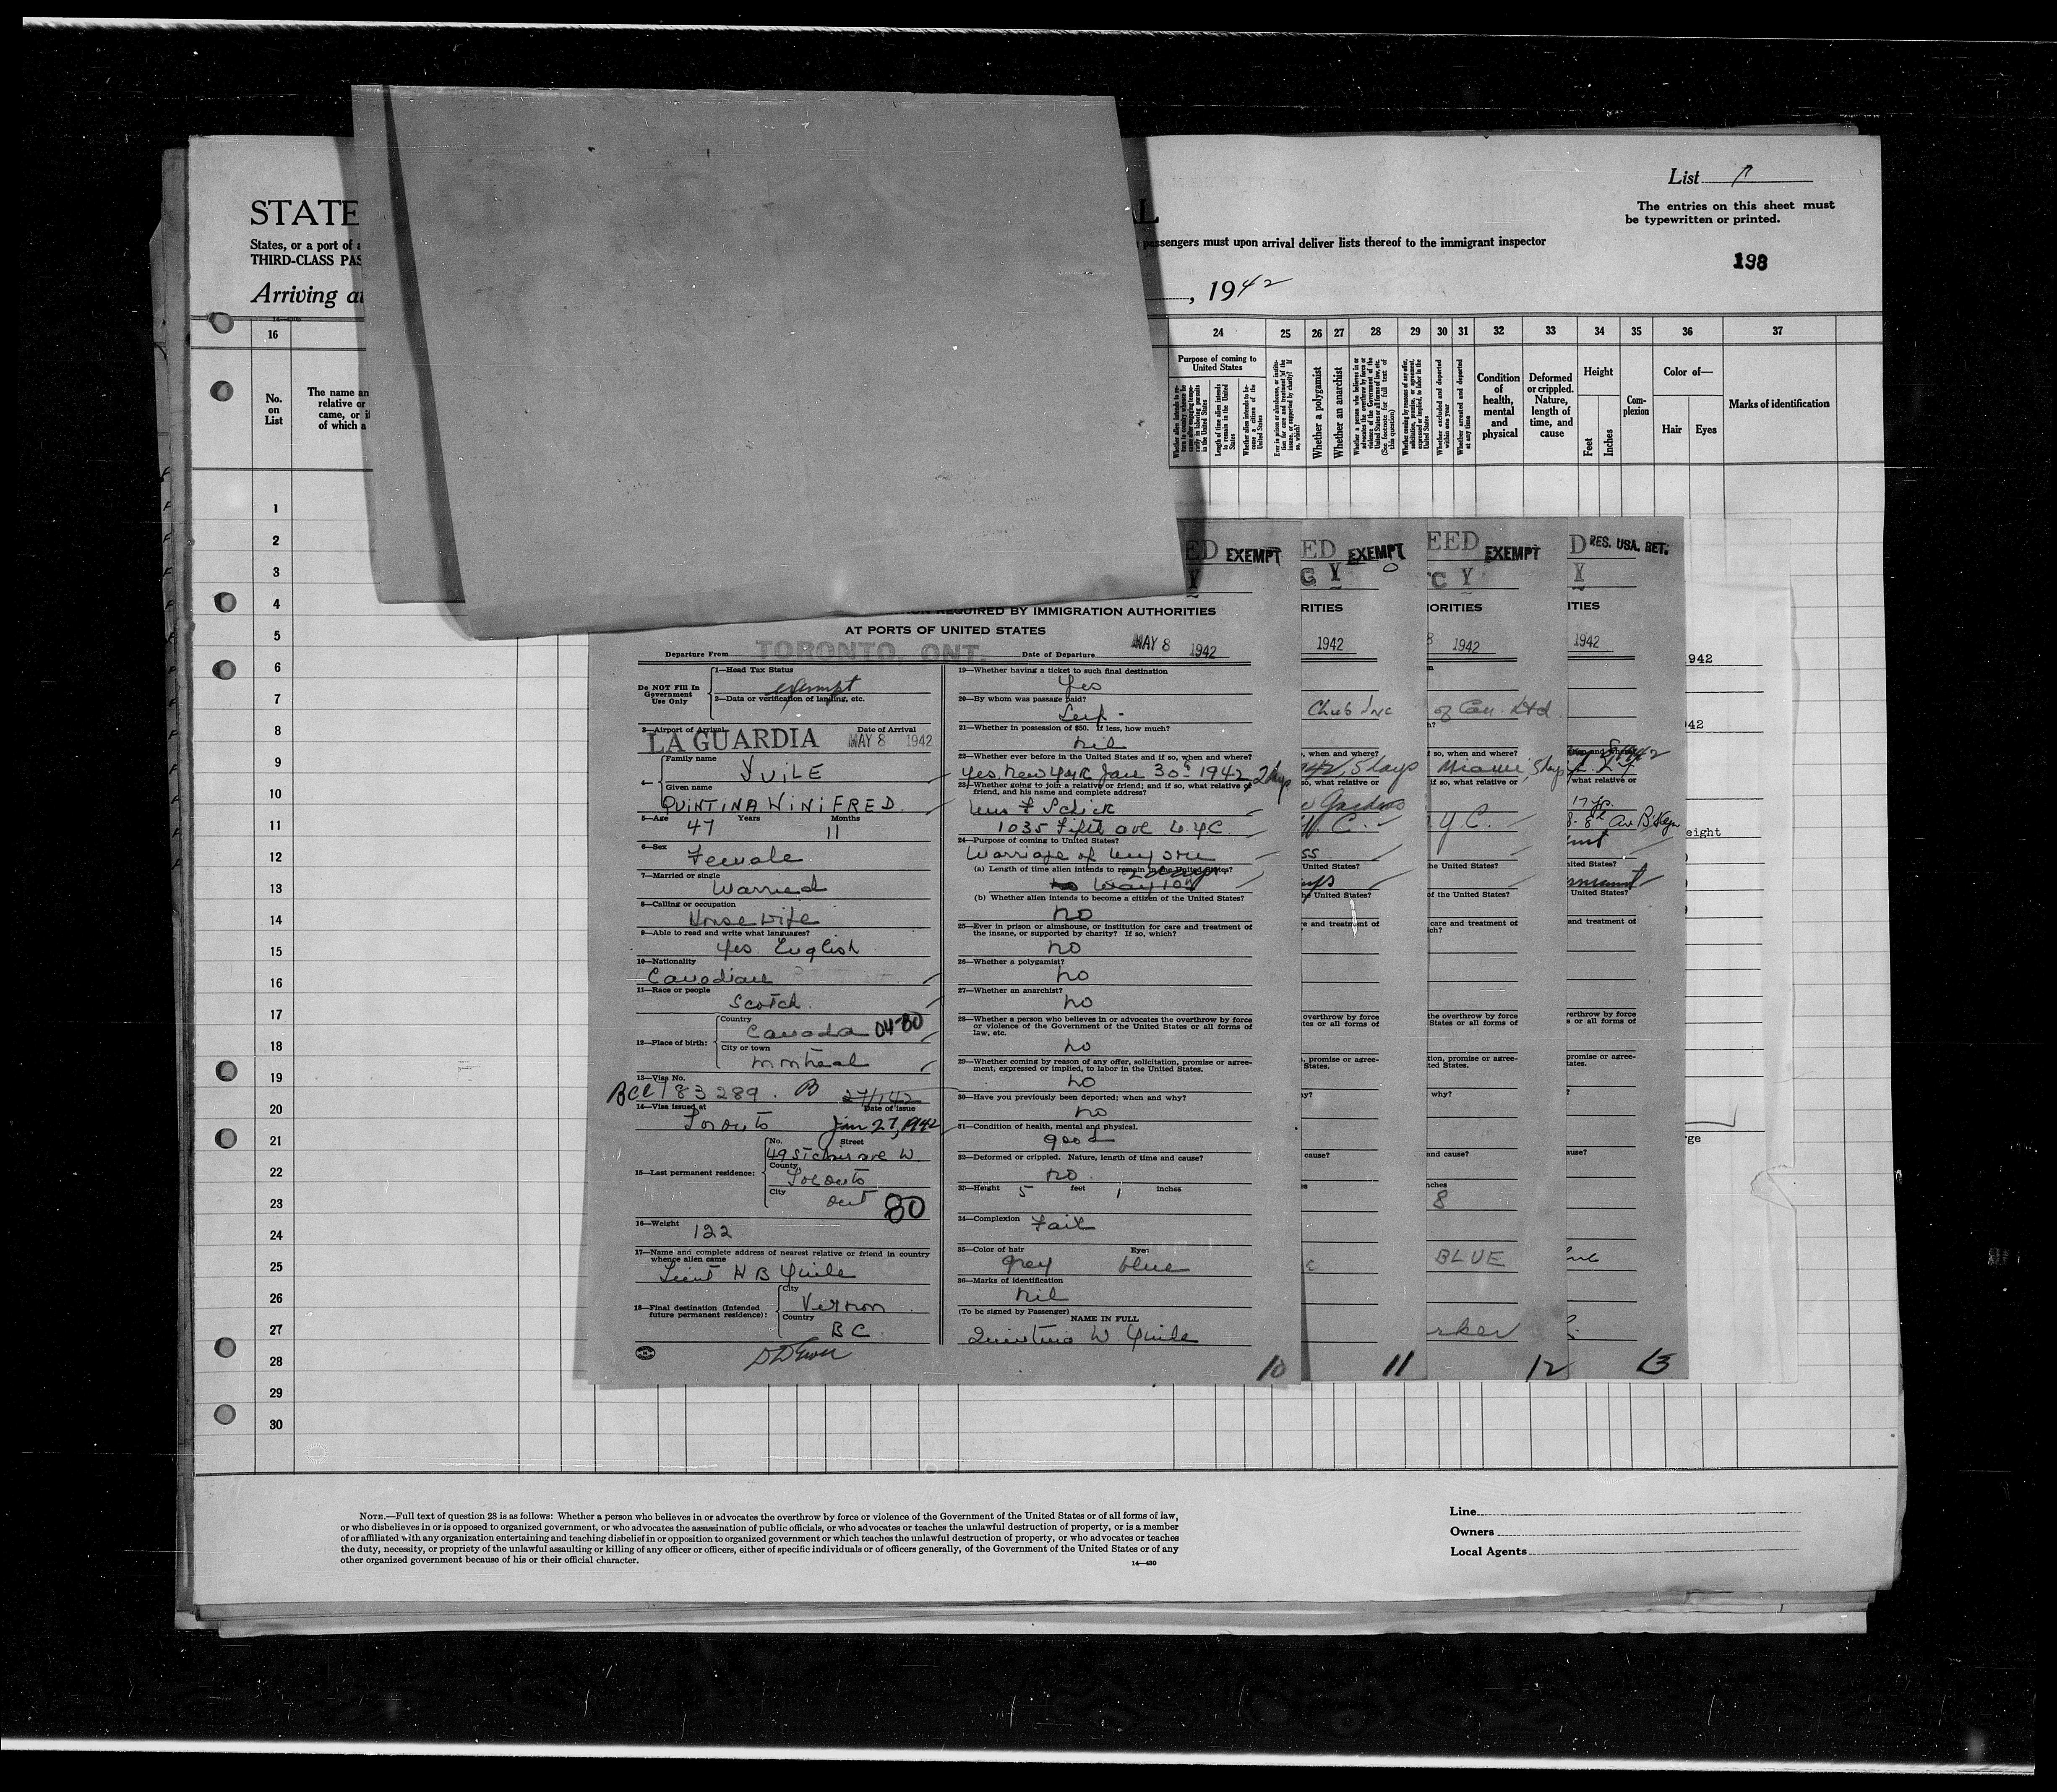 List
The entries on this sheet must
be typewritten or printed.
198
STATE
States, or a port of
passengers must upon arrival deliver lists thereof to the immigrant inspector
THIRD-CLASS PAS
Arriving at
, 1942
16 24 25 26 27 28 29 30 31 32 33 34 35 36 37
No.
on
List
The name an
relative or
came, or if
of which a
Purpose of coming to
United States
Length of time alien intends
to remain in the United
States
Whether a polygamist
Whether an anarchist
Whether excluded and deported
within one year
Whether arrested and deported
at any time
Condition
of
health,
mental
and
physical
Deformed
or crippled.
Nature,
length of
time, and
cause
Height
Feet
Inches
Com-
plexion
Color of—
Hair
Eyes
Marks of identification
1
2
3
4
5
6
7
8
9
10
11
12
13
14
15
16
17
18
19
20
21
22
23
24
25
26
27
28
29
30
ED EXEMPT
Y
REQUIRED BY IMMIGRATION AUTHORITIES
AT PORTS OF UNITED STATES
Departure From TORONTO, ONT. Date of Departure MAY 8 1942
Do NOT Fill In
Government
Use Only
1—Head Tax Status
exempt
2—Data or verification of landing, etc.
3—Airport of Arrival Date of Arrival
LA GUARDIA MAY 8 1942
4—
Family name
YUILE
Given name
QUINTINA WINIFRED
5—Age 47 Years 11 Months
6—Sex
Female
7—Married or single
Married
8—Calling or occupation
Housewife
9—Able to read and write what languages?
Yes English
10—Nationality
Canadian
11—Race or people
Scotch
12—Place of birth:
Country
Canada 04-80
City or town
Montreal
13—Visa No.
183289 B
14—Visa issued at Date of issue
Toronto Jan 27, 1942
15—Last permanent residence:
No. Street
49 St Clair ave W
County
Toronto
City
Ont 80
16—Weight 122
17—Name and complete address of nearest relative or friend in country
whence alien came
Lieut H B Yuile
18—Final destination (Intended
future permanent residence):
City
Vernon
Country
BC
19—Whether having a ticket to such final destination
Yes
20—By whom was passage paid?
Self
21—Whether in possession of $50. If less, how much?
Nil
22—Whether ever before in the United States and if so, when and where?
Yes New York Jan 30th 1942, 2 days
23—Whether going to join a relative or friend; and if so, what relative or
friend, and his name and complete address?
F Schick
1035 Fifth ave N.Y.C.
24—Purpose of coming to United States?
Marriage of my son
(a) Length of time alien intends to remain in the United States?
May 10th
(b) Whether alien intends to become a citizen of the United States?
no
25—Ever in prison or almshouse, or institution for care and treatment of
the insane, or supported by charity? If so, which?
no
26—Whether a polygamist?
no
27—Whether an anarchist?
no
28—Whether a person who believes in or advocates the overthrow by force
or violence of the Government of the United States or all forms of
law, etc.
no
29—Whether coming by reason of any offer, solicitation, promise or agree-
ment, expressed or implied, to labor in the United States.
no
30—Have you previously been deported; when and why?
no
31—Condition of health, mental and physical.
good
32—Deformed or crippled. Nature, length of time and cause?
no
33—Height 5 feet 1 inches
34—Complexion Fair
35—Color of hair Eyes
grey blue
36—Marks of identification
Nil
(To be signed by Passenger)
NAME IN FULL
Quintina W. Yuile
10
ED EXEMPT
G Y
RITIES
1942
Chub Inc
, when and where?
so, what relative or
United States?
he United States?
e and treatment of
overthrow by force
tes or all forms of
, promise or agree-
States.
cause?
11
EED EXEMPT
C Y
IORITIES
8 1942
of Can. Ltd
if so, when and where?
Miami, 5 days
if so, what relative or
Y.C.
he United States?
of the United States?
care and treatment of
the overthrow by force
States or all forms of
tion, promise or agree-
ted States.
why?
and cause?
nches
8
BLUE
rker
12
D RES. USA. RET.
Y
ITIES
1942
what relative or
nited States?
United States?
and treatment of
verthrow by force
s or all forms of
promise or agree-
tates.
ause?
13
942
42
eight
rge
NOTE.—Full text of question 28 is as follows: Whether a person who believes in or advocates the overthrow by force or violence of the Government of the United States or of all forms of law,
or who disbelieves in or is opposed to organized government, or who advocates the assassination of public officials, or who advocates or teaches the unlawful destruction of property, or is a member
of or affiliated with any organization entertaining and teaching disbelief in or opposition to organized government or which teaches the unlawful destruction of property, or who advocates or teaches
the duty, necessity, or propriety of the unlawful assaulting or killing of any officer or officers, either of specific individuals or of officers generally, of the Government of the United States or of any
other organized government because of his or their official character.
14—430
Line
Owners
Local Agents